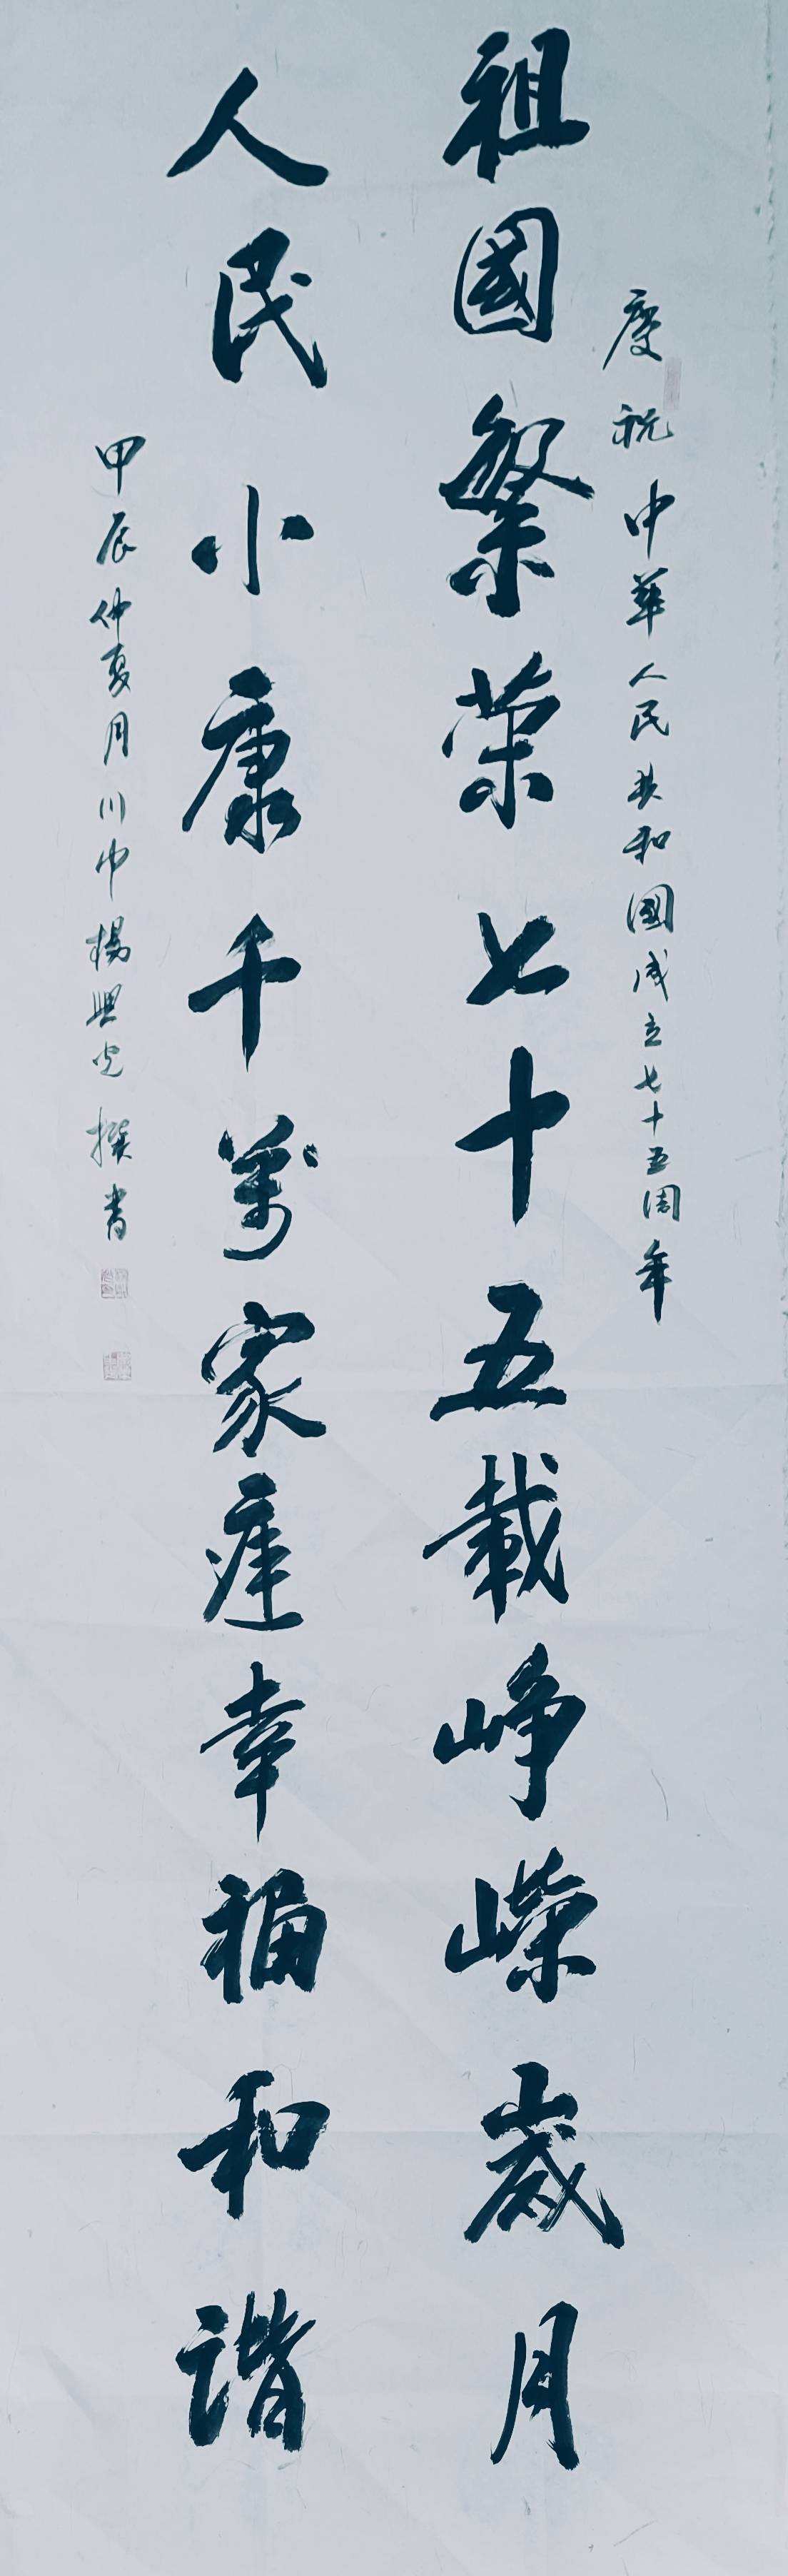 慶祝中華人民共和國成立七十五周年
祖國繁榮七十五載崢嶸歲月
人民小康千萬家庭幸福和谐
甲辰仲夏月川中楊興光撰書